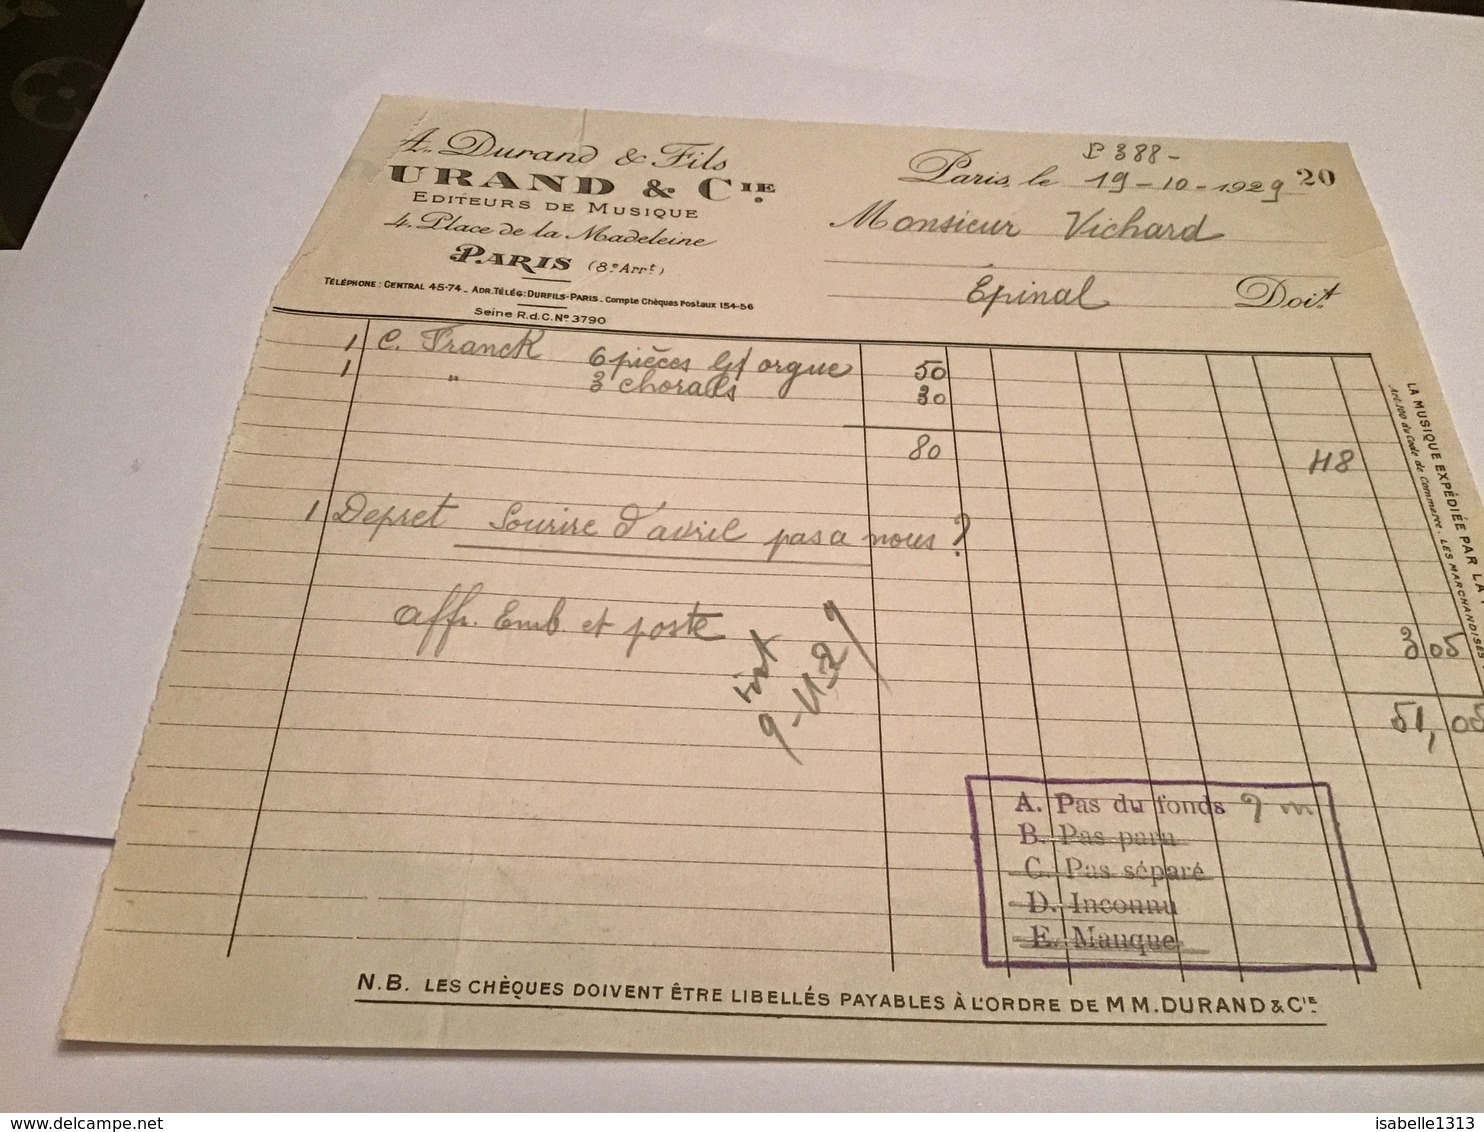 A. Durand & Fils
URAND & CIE
EDITEURS DE MUSIQUE
4, Place de la Madeleine
PARIS (8e Arrt)
TÉLÉPHONE : CENTRAL 45-74 _ ADR. TÉLÉG: DURFILS-PARIS _ Compte Chèques Postaux 154-56
Seine R.d.C. No 3790
388 -
Paris, le 19-10-1929 20
Monsieur Vichard
Épinal Doit
1 C. Franck 6 pièces orgue 50
1 " 3 chorals 30
80 48
1 Depret Sourire d'avril pas a nous ?
aff. Emb. et poste 3 05
51,05
A. Pas du fonds
B. Pas paru
C. Pas séparé
D. Inconnu
E. Manque
N.B. LES CHÈQUES DOIVENT ÊTRE LIBELLÉS PAYABLES À L'ORDRE DE M M. DURAND & CIE
LA MUSIQUE EXPÉDIÉE PAR LA
Art. 100 du Code de Commerce. LES MARCHANDISES
www.delcampe.net
isabelle1313